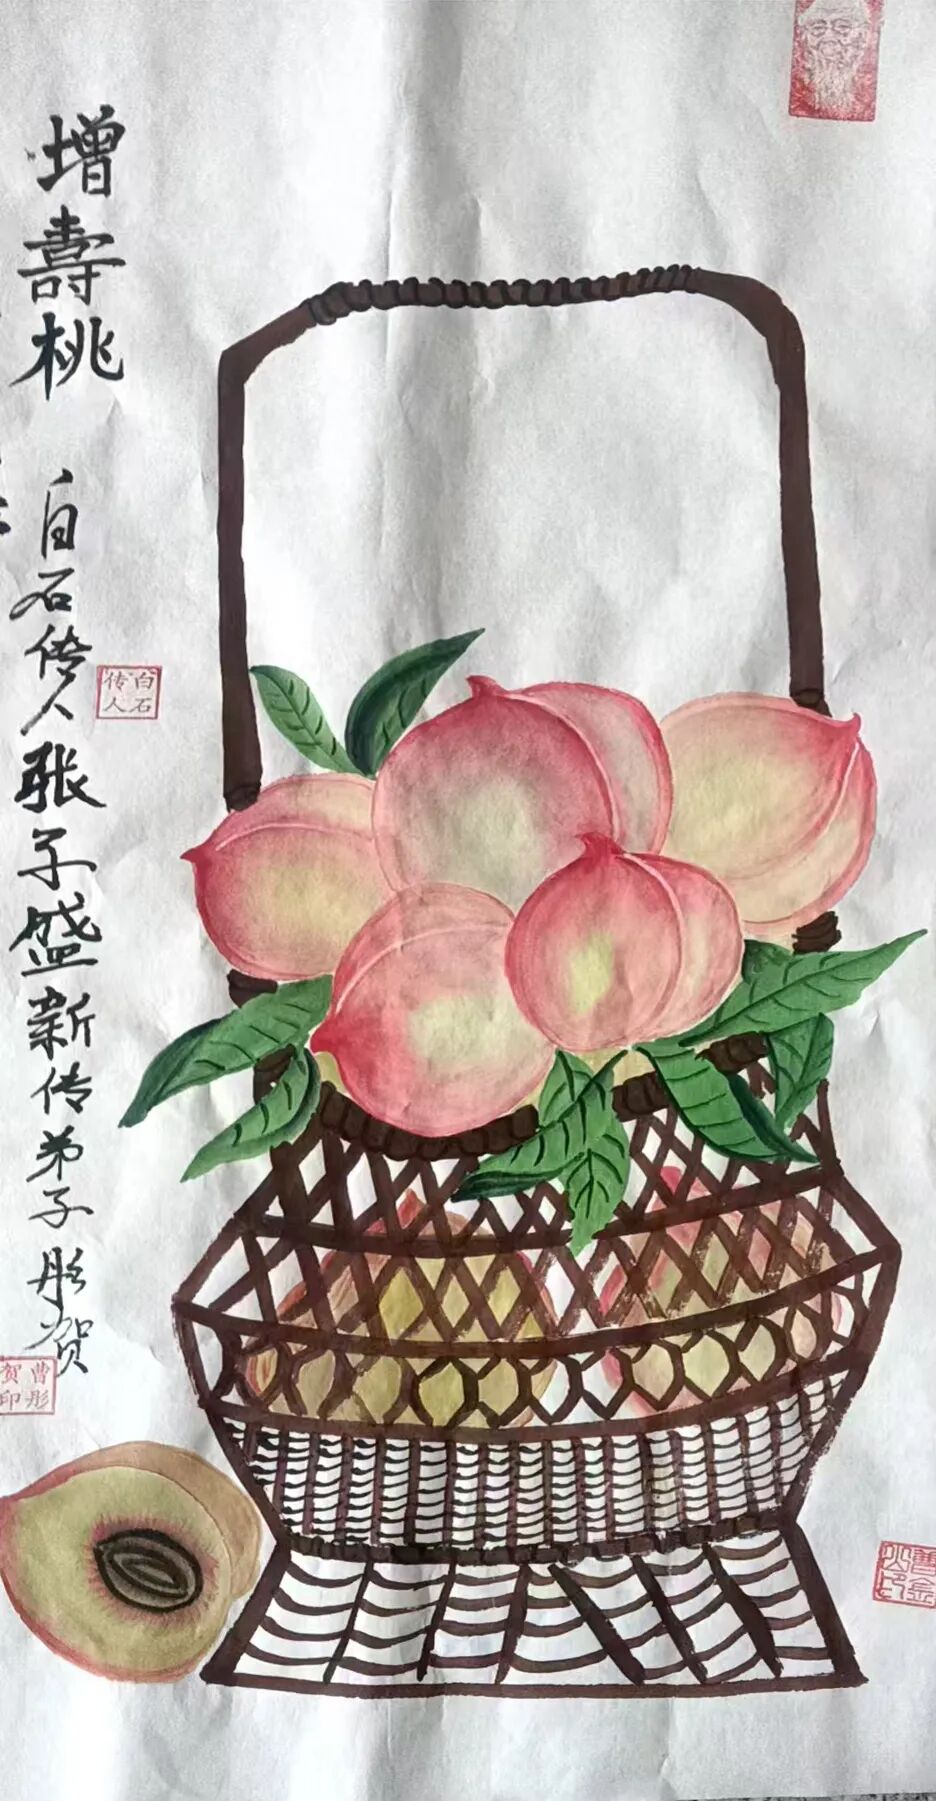 增壽桃
白石传人张子盛新传弟子彤贺
白石传人
曹彤贺印